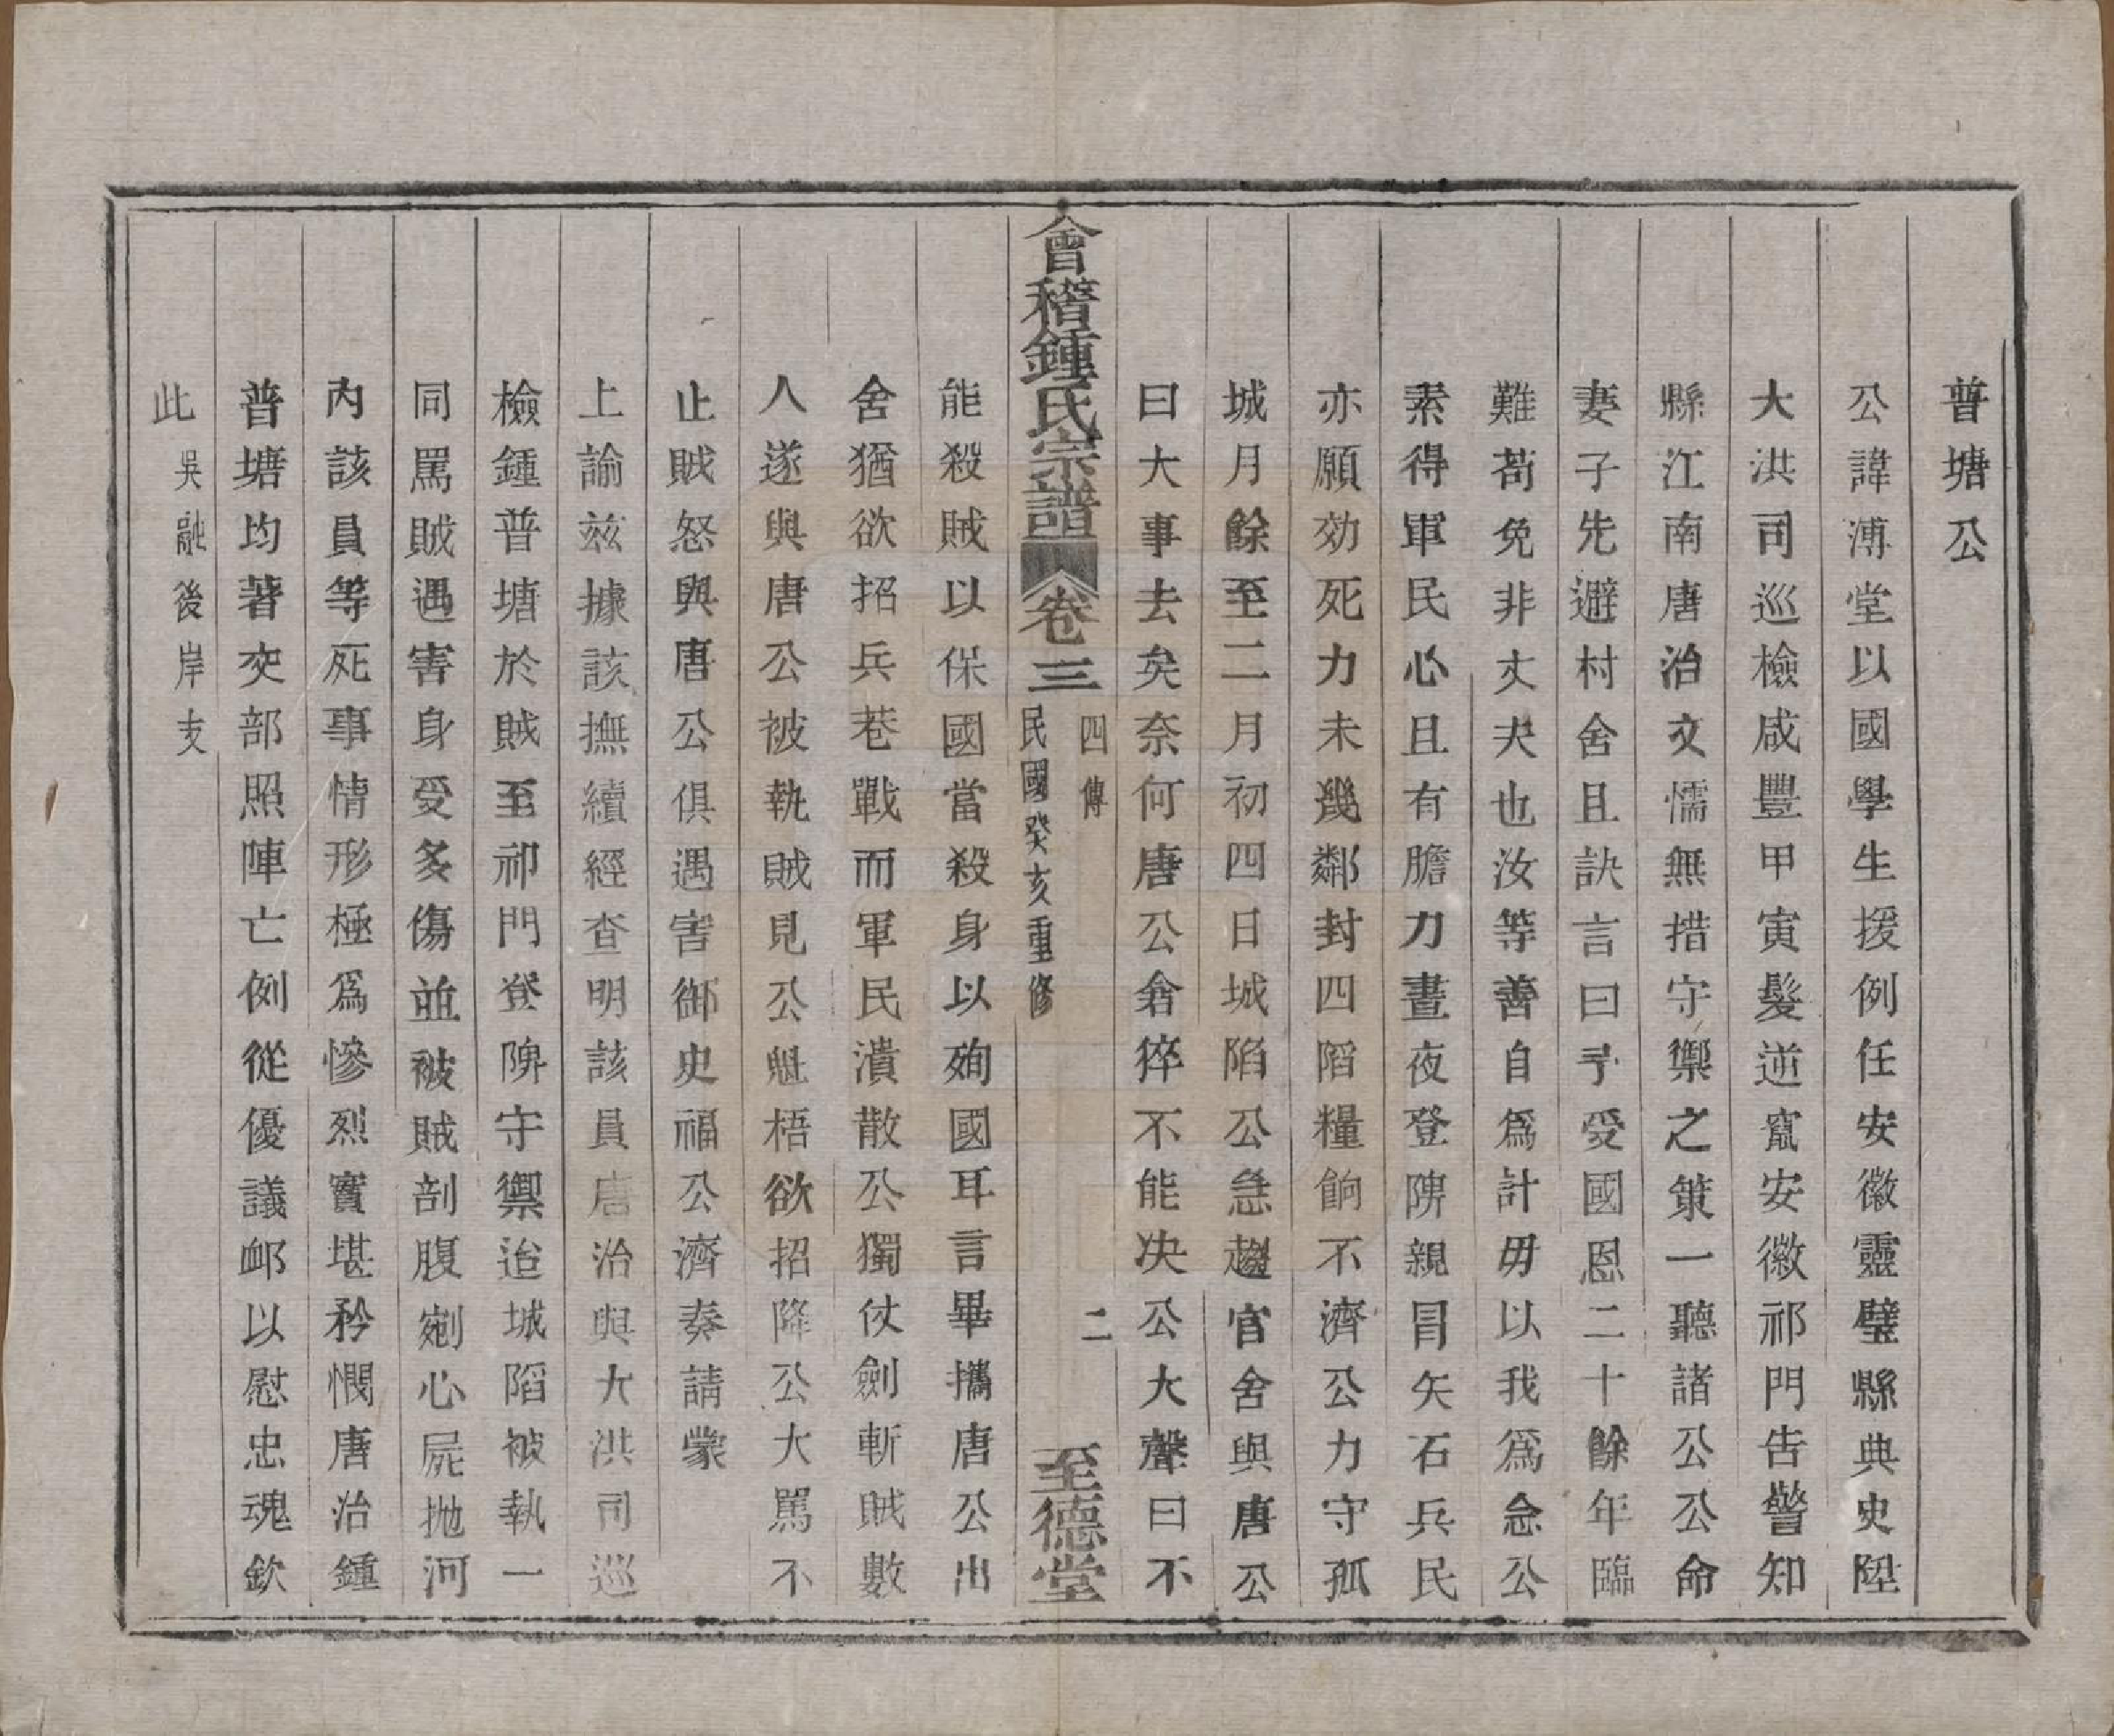 普塘公
公諱溥堂以國學生援例任安徽靈璧縣典史陞
大洪司巡檢咸豐甲寅髮逆竄安徽祁門告警知
縣江南唐治文懦無措守禦之策一聽諸公公命
妻子先避村舍且訣言曰予受國恩二十餘年臨
難苟免非丈夫也汝等善自爲計毋以我爲念公
素得軍民心且有膽力晝夜登陴親冒矢石兵民
亦願効死力未幾鄰封四陷糧餉不濟公力守孤
城月餘至二月初四日城陷公急趨官舍與唐公
曰大事去矣奈何唐公倉猝不能决公大聲曰不
會稽鍾氏宗譜 卷三 四傳 民國癸亥重修 二 至德堂
能殺賊以保國當殺身以殉國耳言畢攜唐公出
舍猶欲招兵巷戰而軍民潰散公獨仗劍斬賊數
人遂與唐公被執賊見公魁梧欲招降公大罵不
止賊怒與唐公俱遇害御史福公濟奏請蒙
上諭茲據該撫續經查明該員唐治與大洪司巡
檢鍾普塘於賊至祁門登陴守禦迨城陷被執一
同罵賊遇害身受多傷並被賊剖腹剜心屍拋河
內該員等死事情形極爲慘烈實堪矜憫唐治鍾
普塘均著交部照陣亡例從優議卹以慰忠魂欽
此 吳融後岸支